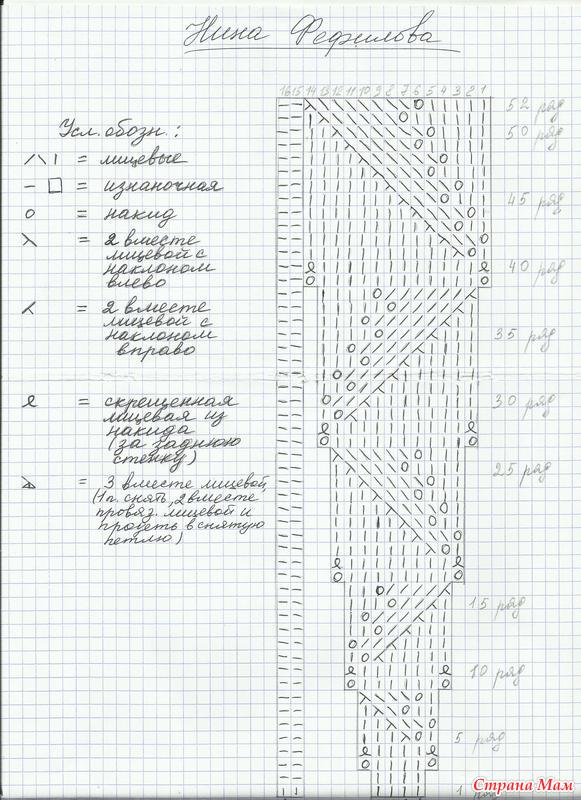 Нина Фефилова
16 15 14 13 12 11 10 9 8 7 6 5 4 3 2 1
52 ряд
Усл. обозн.:
50 ряд
/ \ | = лицевые
– □ = изнаночная
о = накид
45 ряд
= 2 вместе
лицевой с
наклоном
влево
40 ряд
= 2 вместе
лицевой с
наклоном
вправо
35 ряд
= скрещенная
лицевая из
накида
(за заднюю
стенку)
30 ряд
25 ряд
= 3 вместе лицевой
(1п. снять, 2 вместе
провяз. лицевой и
продеть в снятую
петлю)
15 ряд
10 ряд
5 ряд
1 ряд
Страна Мам